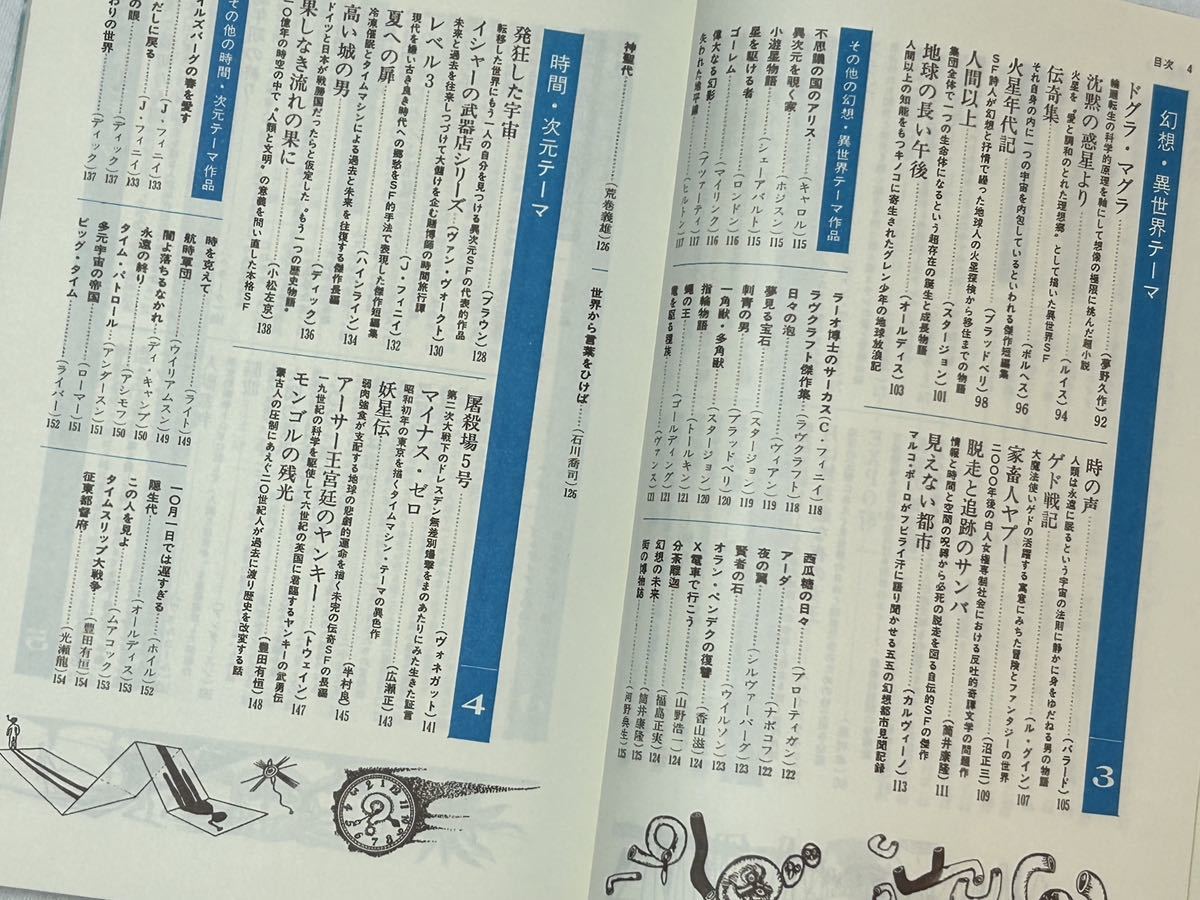 目次 4
幻想・異世界テーマ 3
ドグラ・マグラ……(夢野久作) 92
輪廻転生の科学的原理を軸にして想像の極限に挑んだ超小説
沈黙の惑星より……(ルイス) 94
火星を“愛と調和のとれた理想郷”として描いた異世界SF
伝奇集……(ボルヘス) 96
それ自身の内に一つの宇宙を内包しているといわれる傑作短編集
火星年代記……(ブラッドベリ) 98
SF詩人が幻想と抒情で綴った地球人の火星探検から移住までの物語
人間以上……(スタージョン) 101
集団全体で一つの生命体になるという超存在の誕生と成長物語
地球の長い午後……(オールディス) 103
人間以上の知能をもつキノコに寄生されたグレン少年の地球放浪記
時の声……(バラード) 105
人類は永遠に眠るという宇宙の法則に静かに身をゆだねる男の物語
ゲド戦記……(ル・グイン) 107
大魔法使いゲドの活躍する寓意にみちた冒険とファンタジーの世界
家畜人ヤプー……(沼正三) 109
二〇〇〇年後の白人女権専制社会における反吐的奇譚文学の問題作
脱走と追跡のサンバ……(筒井康隆) 111
情報と時間と空間の呪縛から必死の脱走を図る自伝的SFの傑作
見えない都市……(カルヴィーノ) 113
マルコ・ポーロがフビライ汗に語り聞かせる五五の幻想都市見聞記録
その他の幻想・異世界テーマ作品
不思議の国のアリス……(キャロル) 115
異次元を覗く家……(ホジスン) 115
小遊星物語……(シェーアバルト) 115
星を駆ける者……(ロンドン) 116
ゴーレム……(マイリンク) 116
偉大なる幻影……(ブッツァーティ) 117
失われた地平線……(ヒルトン) 117
ラーオ博士のサーカス(C・フィニイ) 118
ラヴクラフト傑作集……(ラヴクラフト) 118
日々の泡……(ヴィアン) 119
夢見る宝石……(スタージョン) 119
刺青の男……(ブラッドベリ) 120
一角獣・多角獣……(スタージョン) 120
指輪物語……(トールキン) 121
蠅の王……(ゴールディング) 121
竜を駆る種族……(ヴァンス) 121
西瓜糖の日々……(ブローティガン) 122
アーダ……(ナボコフ) 122
夜の翼……(シルヴァーバーグ) 123
賢者の石……(ウイルソン) 123
オラン・ペンデクの復讐……(香山滋) 124
X電車で行こう……(山野浩一) 124
分茶離迦……(福島正実) 124
幻想の未来……(筒井康隆) 125
街の博物誌……(河野典生) 125
神聖代……(荒巻義雄) 126
世界から言葉をひけば……(石川喬司) 126
時間・次元テーマ 4
発狂した宇宙……(ブラウン) 128
転移した世界にもう一人の自分を見つける異次元SFの代表的作品
イシャーの武器店シリーズ(ヴァン・ヴォークト) 130
未来と過去を往来しつづけて大儲けを企む賭博師の時間旅行譚
レベル3……(J・フィニイ) 132
現代を繕い古き良き時代への郷愁をSF的手法で表現した傑作短編集
夏への扉……(ハインライン) 134
冷凍催眠とタイムマシンによる過去と未来を往復する傑作長編
高い城の男……(ディック) 136
ドイツと日本が戦勝国だったらと仮定した“もう一つの歴史物語”
果しなき流れの果に……(小松左京) 138
一〇億年の時空の中で“人類と文明”の意義を問い直した本格SF
屠殺場5号……(ヴォネガット) 141
第二次大戦下のドレスデン無差別爆撃をまのあたりにみた生きた証言
マイナス・ゼロ……(広瀬正) 143
昭和初年の東京を描くタイムマシン・テーマの異色作
妖星伝……(半村良) 145
弱肉強食が支配する地球の悲劇的運命を描く未完の伝奇SFの長編
アーサー王宮廷のヤンキー……(トウェイン) 147
一九世紀の科学を駆使して六世紀の英国に君臨するヤンキーの武勇伝
モンゴルの残光……(豊田有恒) 148
蒙古人の圧制にあえぐ二〇世紀人が過去に渡り歴史を改変する話
その他の時間・次元テーマ作品
イルズバーグの春を愛す
……(J・フィニイ) 133
だしに戻る……(J・フィニイ) 133
の眼……(ディック) 137
わりの世界……(ディック) 137
時を克えて……(ライト) 149
航時軍団……(ウイリアムスン) 149
闇よ落ちるなかれ……(ディ・キャンプ) 150
永遠の終り……(アシモフ) 150
タイム・パトロール……(アンダースン) 151
多元宇宙の帝国……(ローマー) 151
ビッグ・タイム……(ライバー) 152
一〇月一日では遅すぎる……(ホイル) 152
隠生代……(オールディス) 153
この人を見よ……(ムアコック) 153
タイムスリップ大戦争……(豊田有恒) 154
征東都督府……(光瀬龍) 154